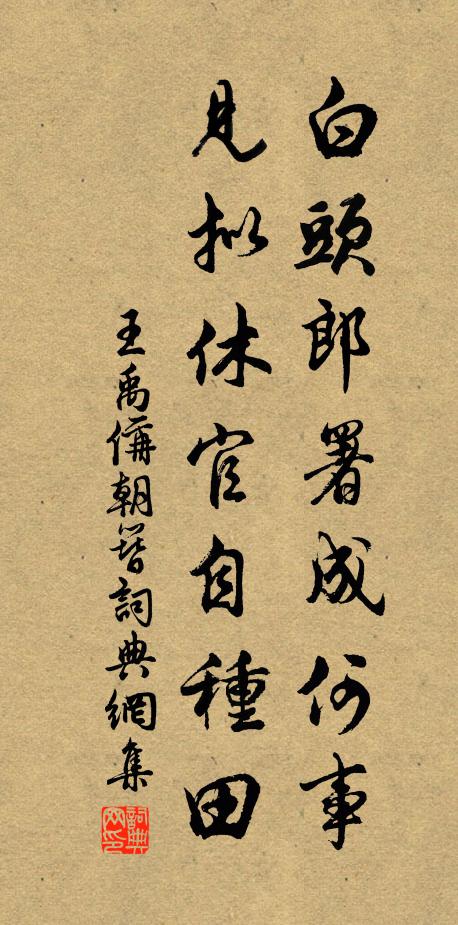 白頭郎署成何事
見擬休官自種田
王禹偁朝簪詞典網集
詞典網印